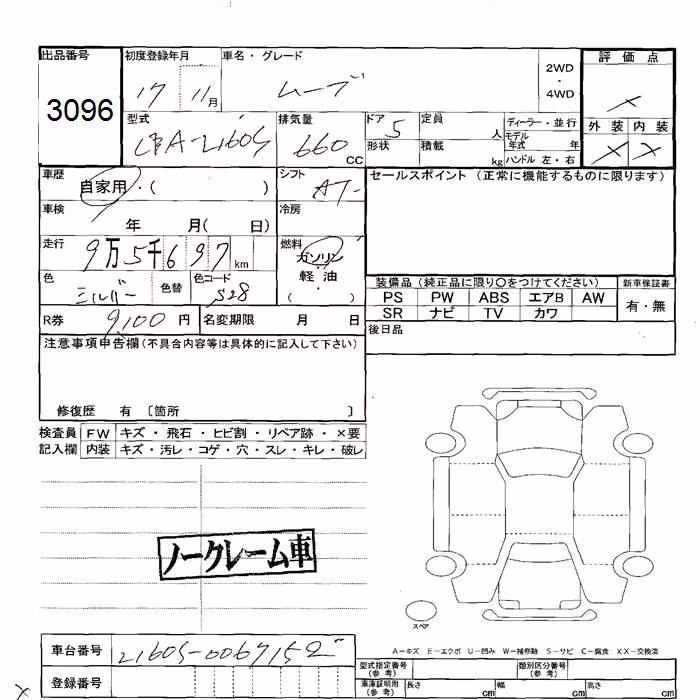 出品番号 初度登録年月 車名・グレード 2WD・4WD 評価点
3096 17 11月 ムーブ ×
型式 排気量 ドア 定員 ディーラー・並行 外装 内装
CBA-L160S 660 CC 5 人 モデル年式 年 × ×
形状 積載 kg ハンドル 左・右
車歴 自家用・( ) シフト AT セールスポイント (正常に機能するものに限ります)
車検 年 月( 日) 冷房
走行 9万5千697km 燃料 ガソリン 軽油 ( )
色 シルバー 色替 色コード S28
装備品 (純正品に限り○をつけてください) 新車保証書
PS PW ABS エアB AW 有・無
SR ナビ TV カワ
R券 9,100円 名変期限 月 日 後日品
注意事項申告欄(不具合内容等は具体的に記入して下さい)
修復歴 有 〔箇所 〕
検査員 FW キズ・飛石・ヒビ割・リペア跡・×要
記入欄 内装 キズ・汚レ・コゲ・穴・スレ・キレ・破レ
ノークレーム車
スペア
A-キズ E-エクボ U-凹み W-補修跡 S-サビ C-腐食 XX-交換済
車台番号 L160S-0067152
登録番号
型式指定番号(参考) 類別区分番号(参考)
車庫証明用(参考) 長さ cm 幅 cm 高さ cm
×